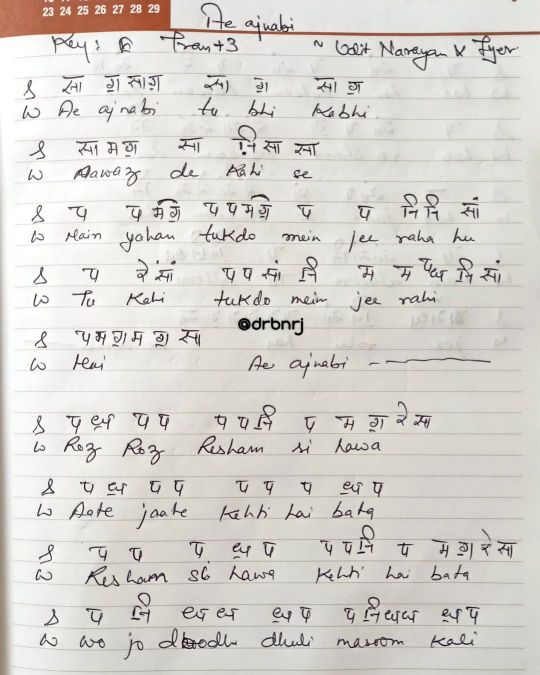 23 24 25 26 27 28 29
Ae ajnabi
Key: Tran+3 ~ Udit Narayan x Iyer
S सा ग॒ साग॒ सा ग॒ सा ग॒
W Ae ajnabi tu bhi Kabhi
S सा म ग॒ सा .नि॒ सा सा
W Aawaz de Kahi se
S प प म॑ग॒ प प म॑ग॒ प प नि॒ नि॒ सां
W Main yahan tukdo mein jee raha hu
S प रे॑सां प प सां नि॒ म म पध॒ नि॒ सां
W Tu Kahi tukdo mein jee rahi
@drbnrj
S प म ग॒ म ग॒ सा
W Hai Ae ajnabi -
S प ध॒ प प प प नि॒ प म ग॒ रे सा
W Roz Roz Resham si hawa
S प ध॒ प प प प प ध॒ प
W Aate jaate Kehti hai bata
S प प प ध॒ प प प नि॒ प म ग॒ रे सा
W Resham si hawa Kehti hai bata
S प नि॒ ध॒ ध॒ ध॒ प प नि॒ध॒ध॒ ध॒ प
W wo jo doodh dhuli masoom Kali